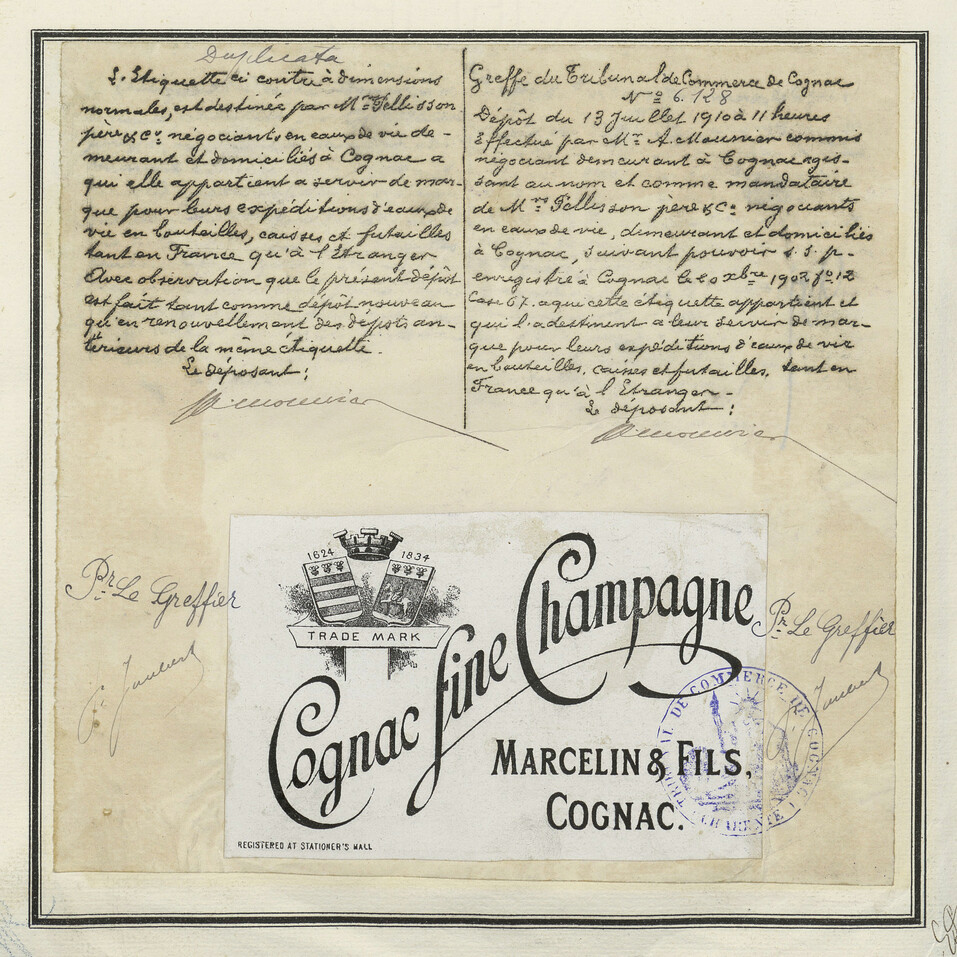 Duplicata
L'Etiquette ci contre à dimensions
normales, est destinée par Mrs Pellisson
père & Co négociants en eaux de vie de-
meurant et domiciliés à Cognac a
qui elle appartient a servir de mar-
que pour leurs expéditions d'eaux de
vie en bouteilles, caisses et futailles
tant en France qu'à l'Etranger
Avec observation que le présent dépôt
est fait tant comme dépôt nouveau
qu'en renouvellement des dépôts an-
térieurs de la même étiquette.
Le déposant:
A. Meunier
Greffe du Tribunal de Commerce de Cognac
No 6.128
Dépôt du 13 Juillet 1910 à 11 heures
Effectué par Mr A. Meunier commis
négociant demeurant à Cognac agis-
sant au nom et comme mandataire
de Mrs Pellisson père & Co négociants
en eaux de vie, demeurant et domiciliés
à Cognac, suivant pouvoir s.s.p.
enregistré à Cognac le 20 xbre 1902 fo 12
Case 67. a qui cette étiquette appartient et
qui l'a destinent a leur servir de mar-
que pour leurs expéditions d'eaux de vie
en bouteilles, caisses et futailles, tant en
France qu'à l'Etranger -
Le déposant:
A. Meunier
Pr Le Greffier
1624 1834
TRADE MARK
Cognac fine Champagne
MARCELIN & FILS,
COGNAC.
REGISTERED AT STATIONER'S HALL
Pr Le Greffier
TRIBUNAL DE COMMERCE DE COGNAC
CHARENTE